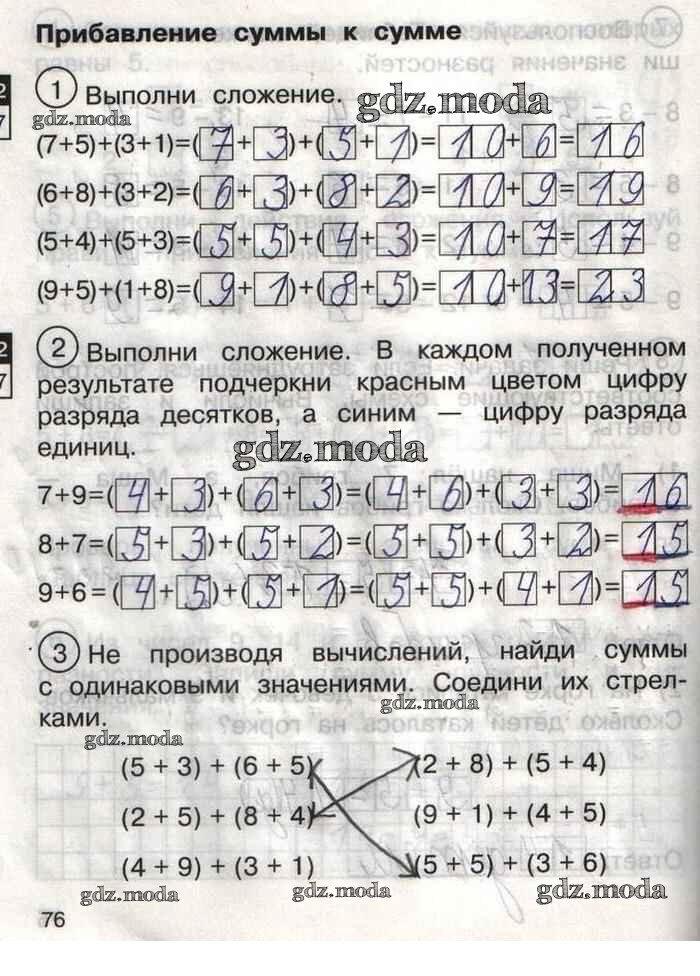 Прибавление суммы к сумме
1 Выполни сложение. gdz.moda
gdz.moda
(7+5)+(3+1)=(7+3)+(5+1)=10+6=16
(6+8)+(3+2)=(6+3)+(8+2)=10+9=19
(5+4)+(5+3)=(5+5)+(4+3)=10+7=17
(9+5)+(1+8)=(9+1)+(8+5)=10+13=23
2 Выполни сложение. В каждом полученном
результате подчеркни красным цветом цифру
разряда десятков, а синим — цифру разряда
единиц. gdz.moda
7+9=(4+3)+(6+3)=(4+6)+(3+3)=16
8+7=(5+3)+(5+2)=(5+5)+(3+2)=15
9+6=(4+5)+(5+1)=(5+5)+(4+1)=15
3 Не производя вычислений, найди суммы
с одинаковыми значениями. Соедини их стрел-
ками. gdz.moda
gdz.moda
(5 + 3) + (6 + 5) (2 + 8) + (5 + 4)
(2 + 5) + (8 + 4) (9 + 1) + (4 + 5)
(4 + 9) + (3 + 1) (5 + 5) + (3 + 6)
gdz.moda gdz.moda gdz.moda
76